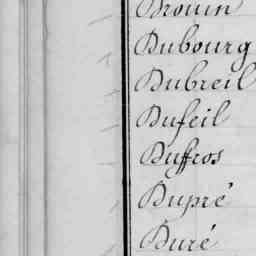 Drouin
Dubourg
Dubreil
Dufeil
Duffros
Dupré
Duré